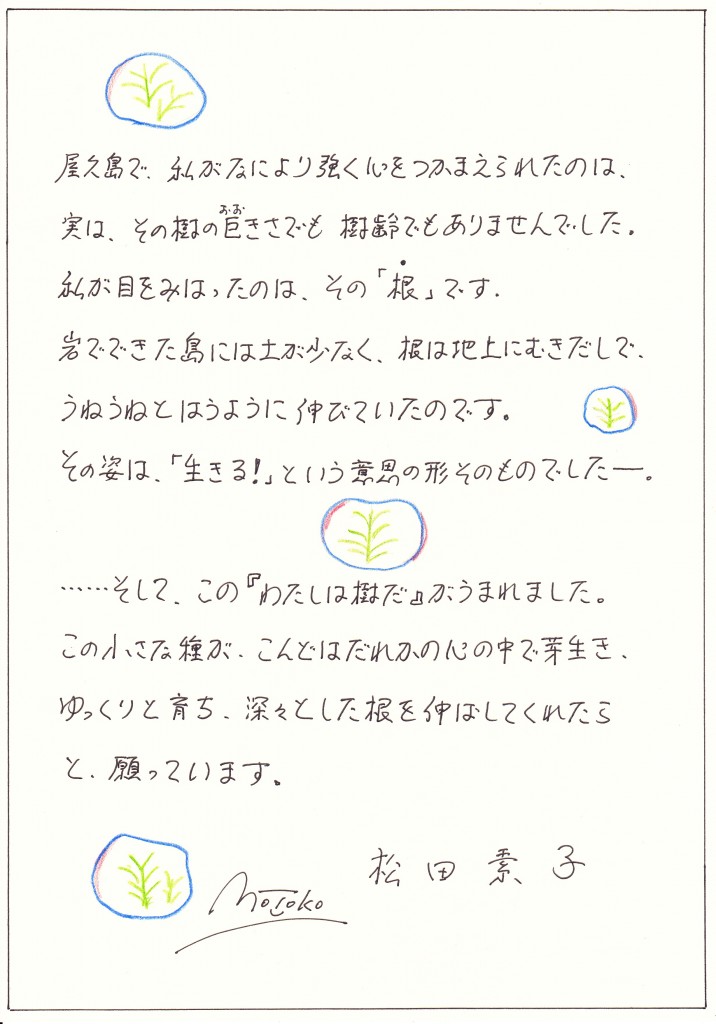 屋久島で、私がなにより強く心をつかまえられたのは、
実は、その樹の巨きさでも 樹齢でもありませんでした。
おお
私が目をみはったのは、その「根」です.
岩でできた島には土が少なく、根は地上にむきだしで、
うねうねとはうように伸びていたのです。
その姿は、「生きる!」という意思の形そのものでした―。
……そして、この『わたしは樹だ』がうまれました。
この小さな種が、こんどはだれかの心の中で芽生き、
ゆっくりと育ち、深々とした根を伸ばしてくれたら
と、願っています。
松田素子
Motoko